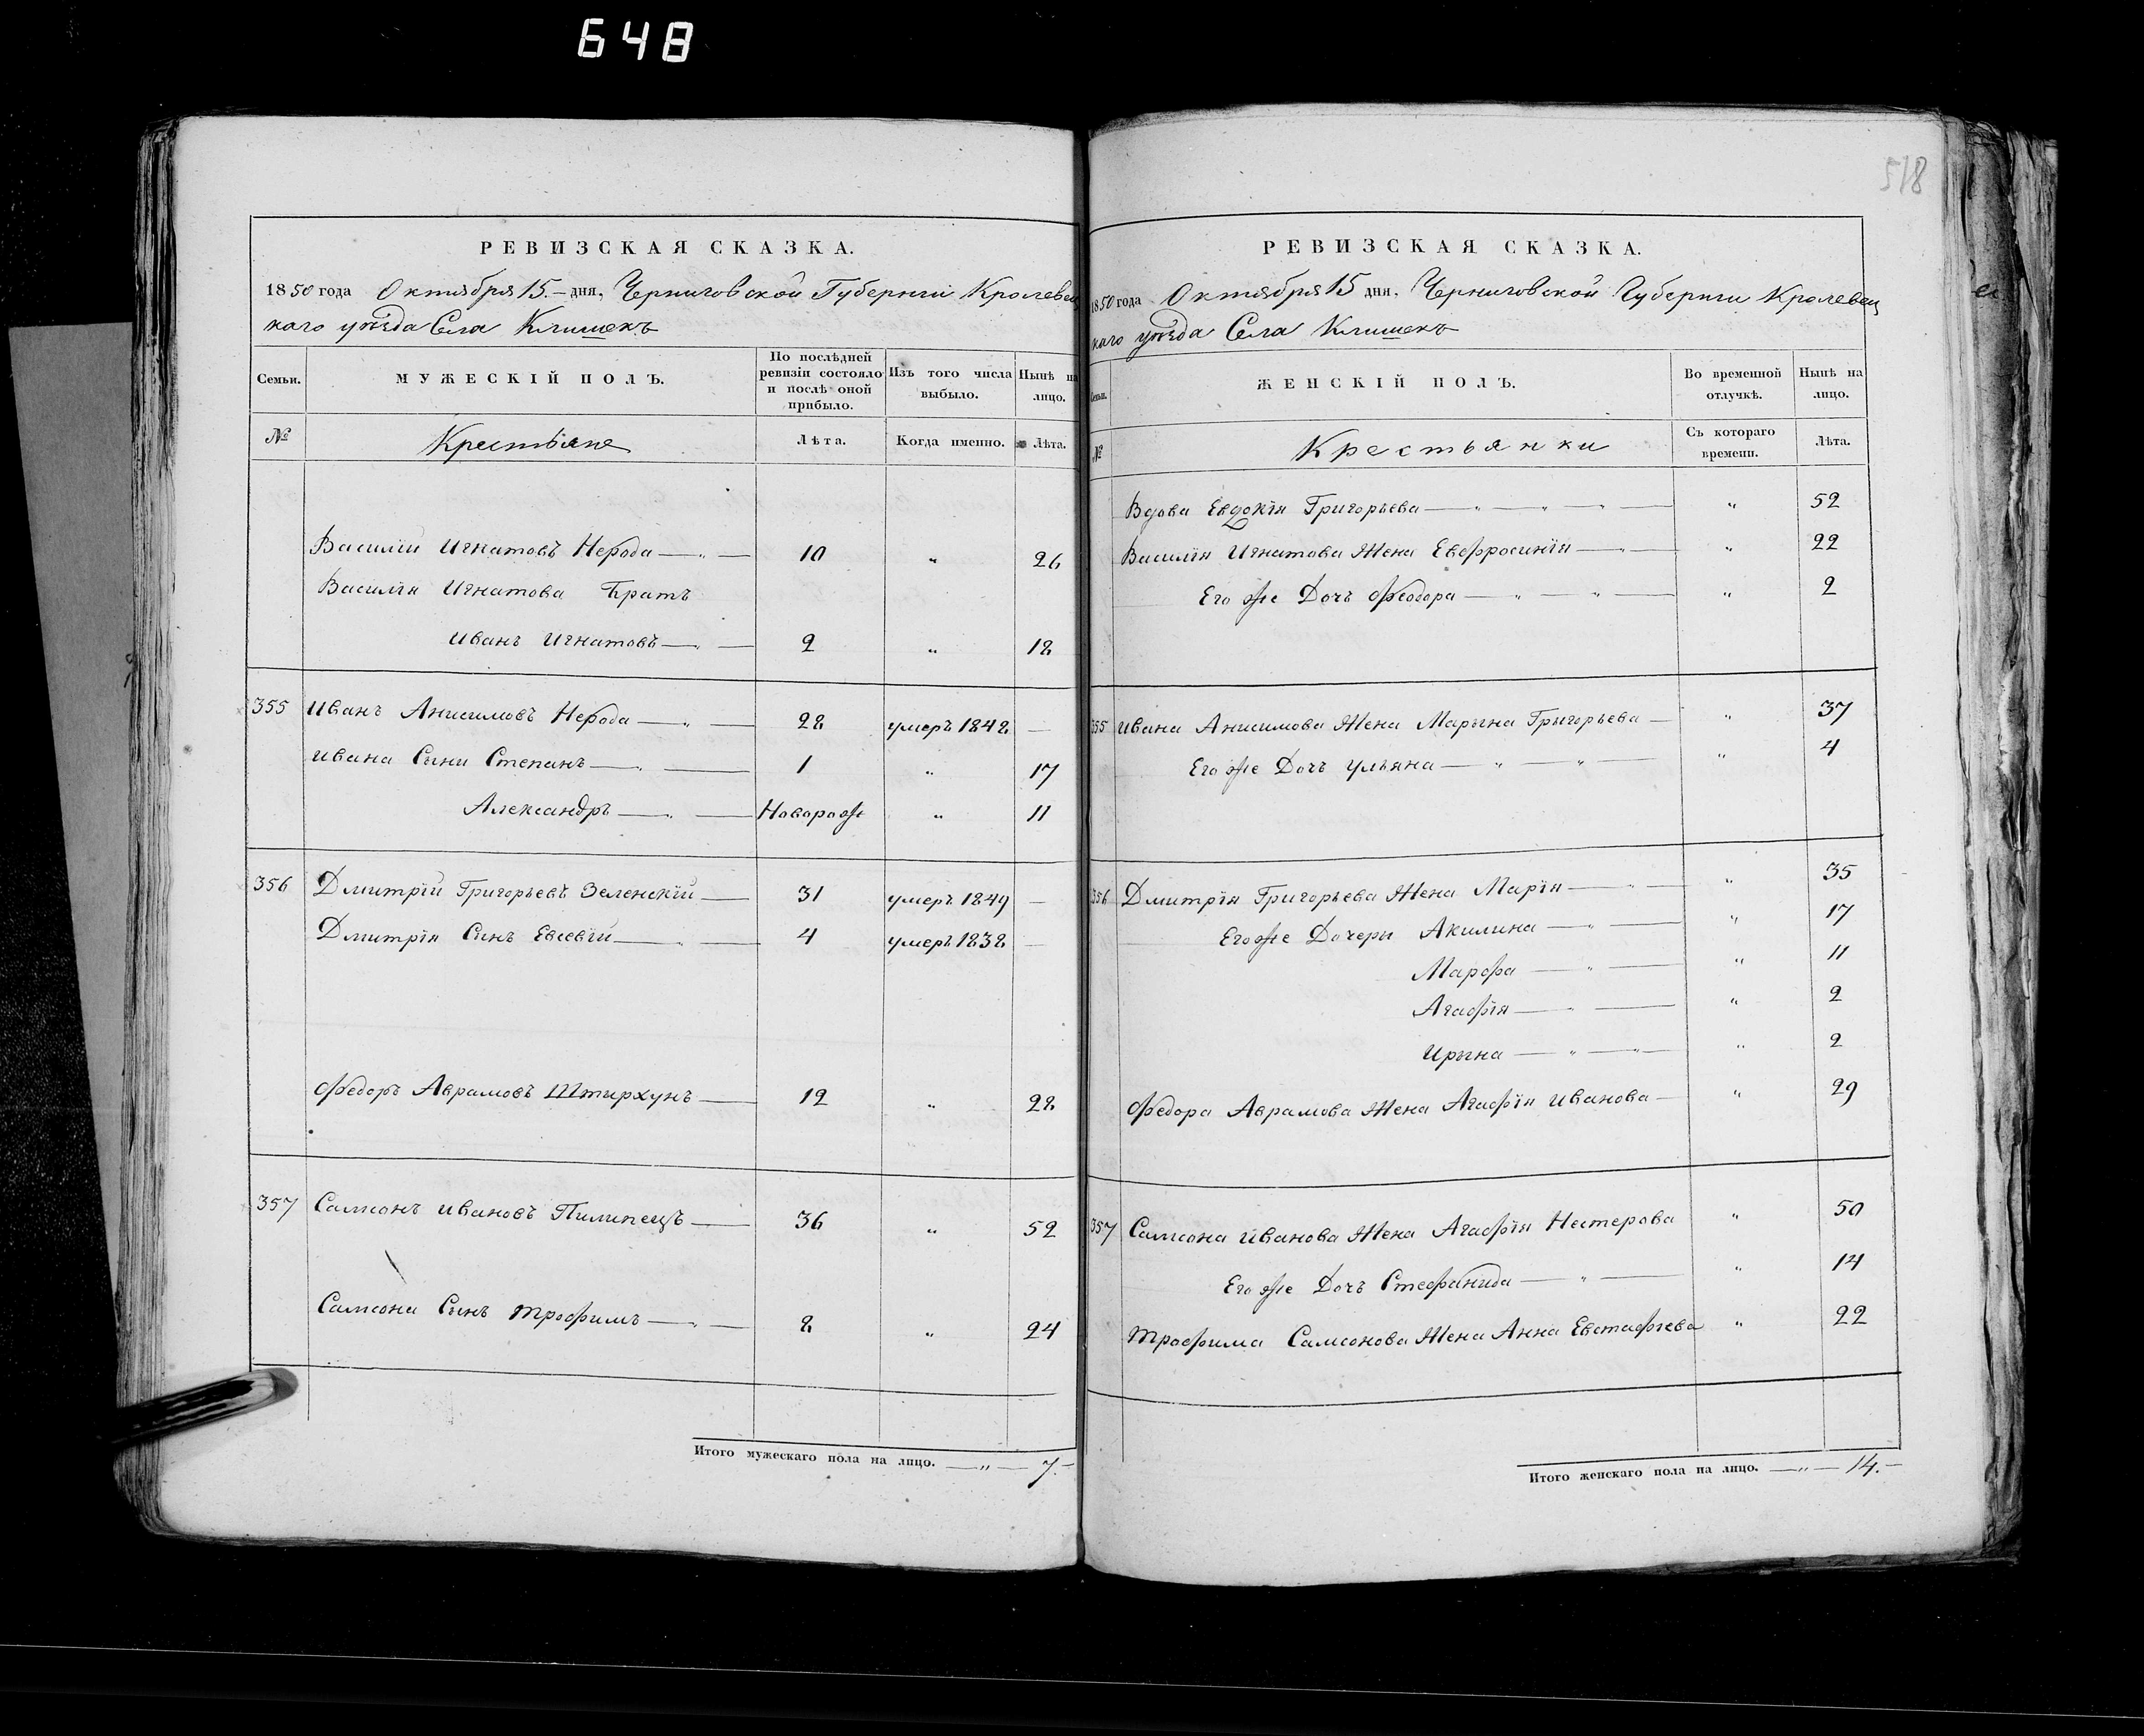 648
518
РЕВИЗСКАЯ СКАЗКА.
1850 года Октября 15.– дня, Черниговской Губерніи Кролевец
каго уѣзда Села Клишекъ
Семьи. МУЖЕСКІЙ ПОЛЪ. По послѣдней ревизіи состояло и послѣ оной прибыло. Изъ того числа выбыло. Нынѣ на лицо.
№ Крестьяне Лѣта. Когда именно. Лѣта.
Василій Игнатовъ Нерода — „ — 10 „ 26
Василія Игнатова Братъ
Иванъ Игнатовъ — „ — 2 „ 18
355 Иванъ Анисимовъ Нерода — „ — 28 умеръ 1848 —
Ивана Сыни Степанъ — „ — 1 „ 17
Александръ — „ — Новорож „ 11
356 Дмитрій Григорьевъ Зеленскій — 31 умеръ 1849 —
Дмитрія Сынъ Евсевій — „ — 4 умеръ 1838 —
Федоръ Аврамовъ Штырхунъ — 12 „ 28
357 Самсонъ Ивановъ Пилипецъ — 36 „ 52
Самсона Сынъ Трофимъ — „ — 8 „ 24
Итого мужескаго пола на лицо. — „ — 7.–
РЕВИЗСКАЯ СКАЗКА.
1850 года Октября 15 дня, Черниговской Губерніи Кролевец
каго уѣзда Села Клишекъ
Семьи. ЖЕНСКІЙ ПОЛЪ. Во временной отлучкѣ. Нынѣ на лицо.
№ Крестьянки Съ котораго времени. Лѣта.
Вдова Евдокія Григорьева — „ — „ — „ — „ 52
Василія Игнатова Жена Евфросинія — „ — „ 22
Его же Дочъ Феодора — „ — „ — „ 2
355 Ивана Анисимова Жена Марына Григорьева — „ 37
Его же Дочъ Ульяна — „ — „ — „ 4
356 Дмитрія Григорьева Жена Марія — „ — „ 35
Его же Дочеры Акилина — „ — „ 17
Марфа — „ — „ 11
Агафія — „ — „ 2
Ирына — „ — „ — „ 2
Федора Аврамова Жена Агафія Иванова — „ 29
357 Самсона Иванова Жена Агафія Нестерова „ 50
Его же Дочъ Стефанида — „ — „ 14
Трофима Самсонова Жена Анна Евстафіева „ 22
Итого женскаго пола на лицо. — „ — 14.–